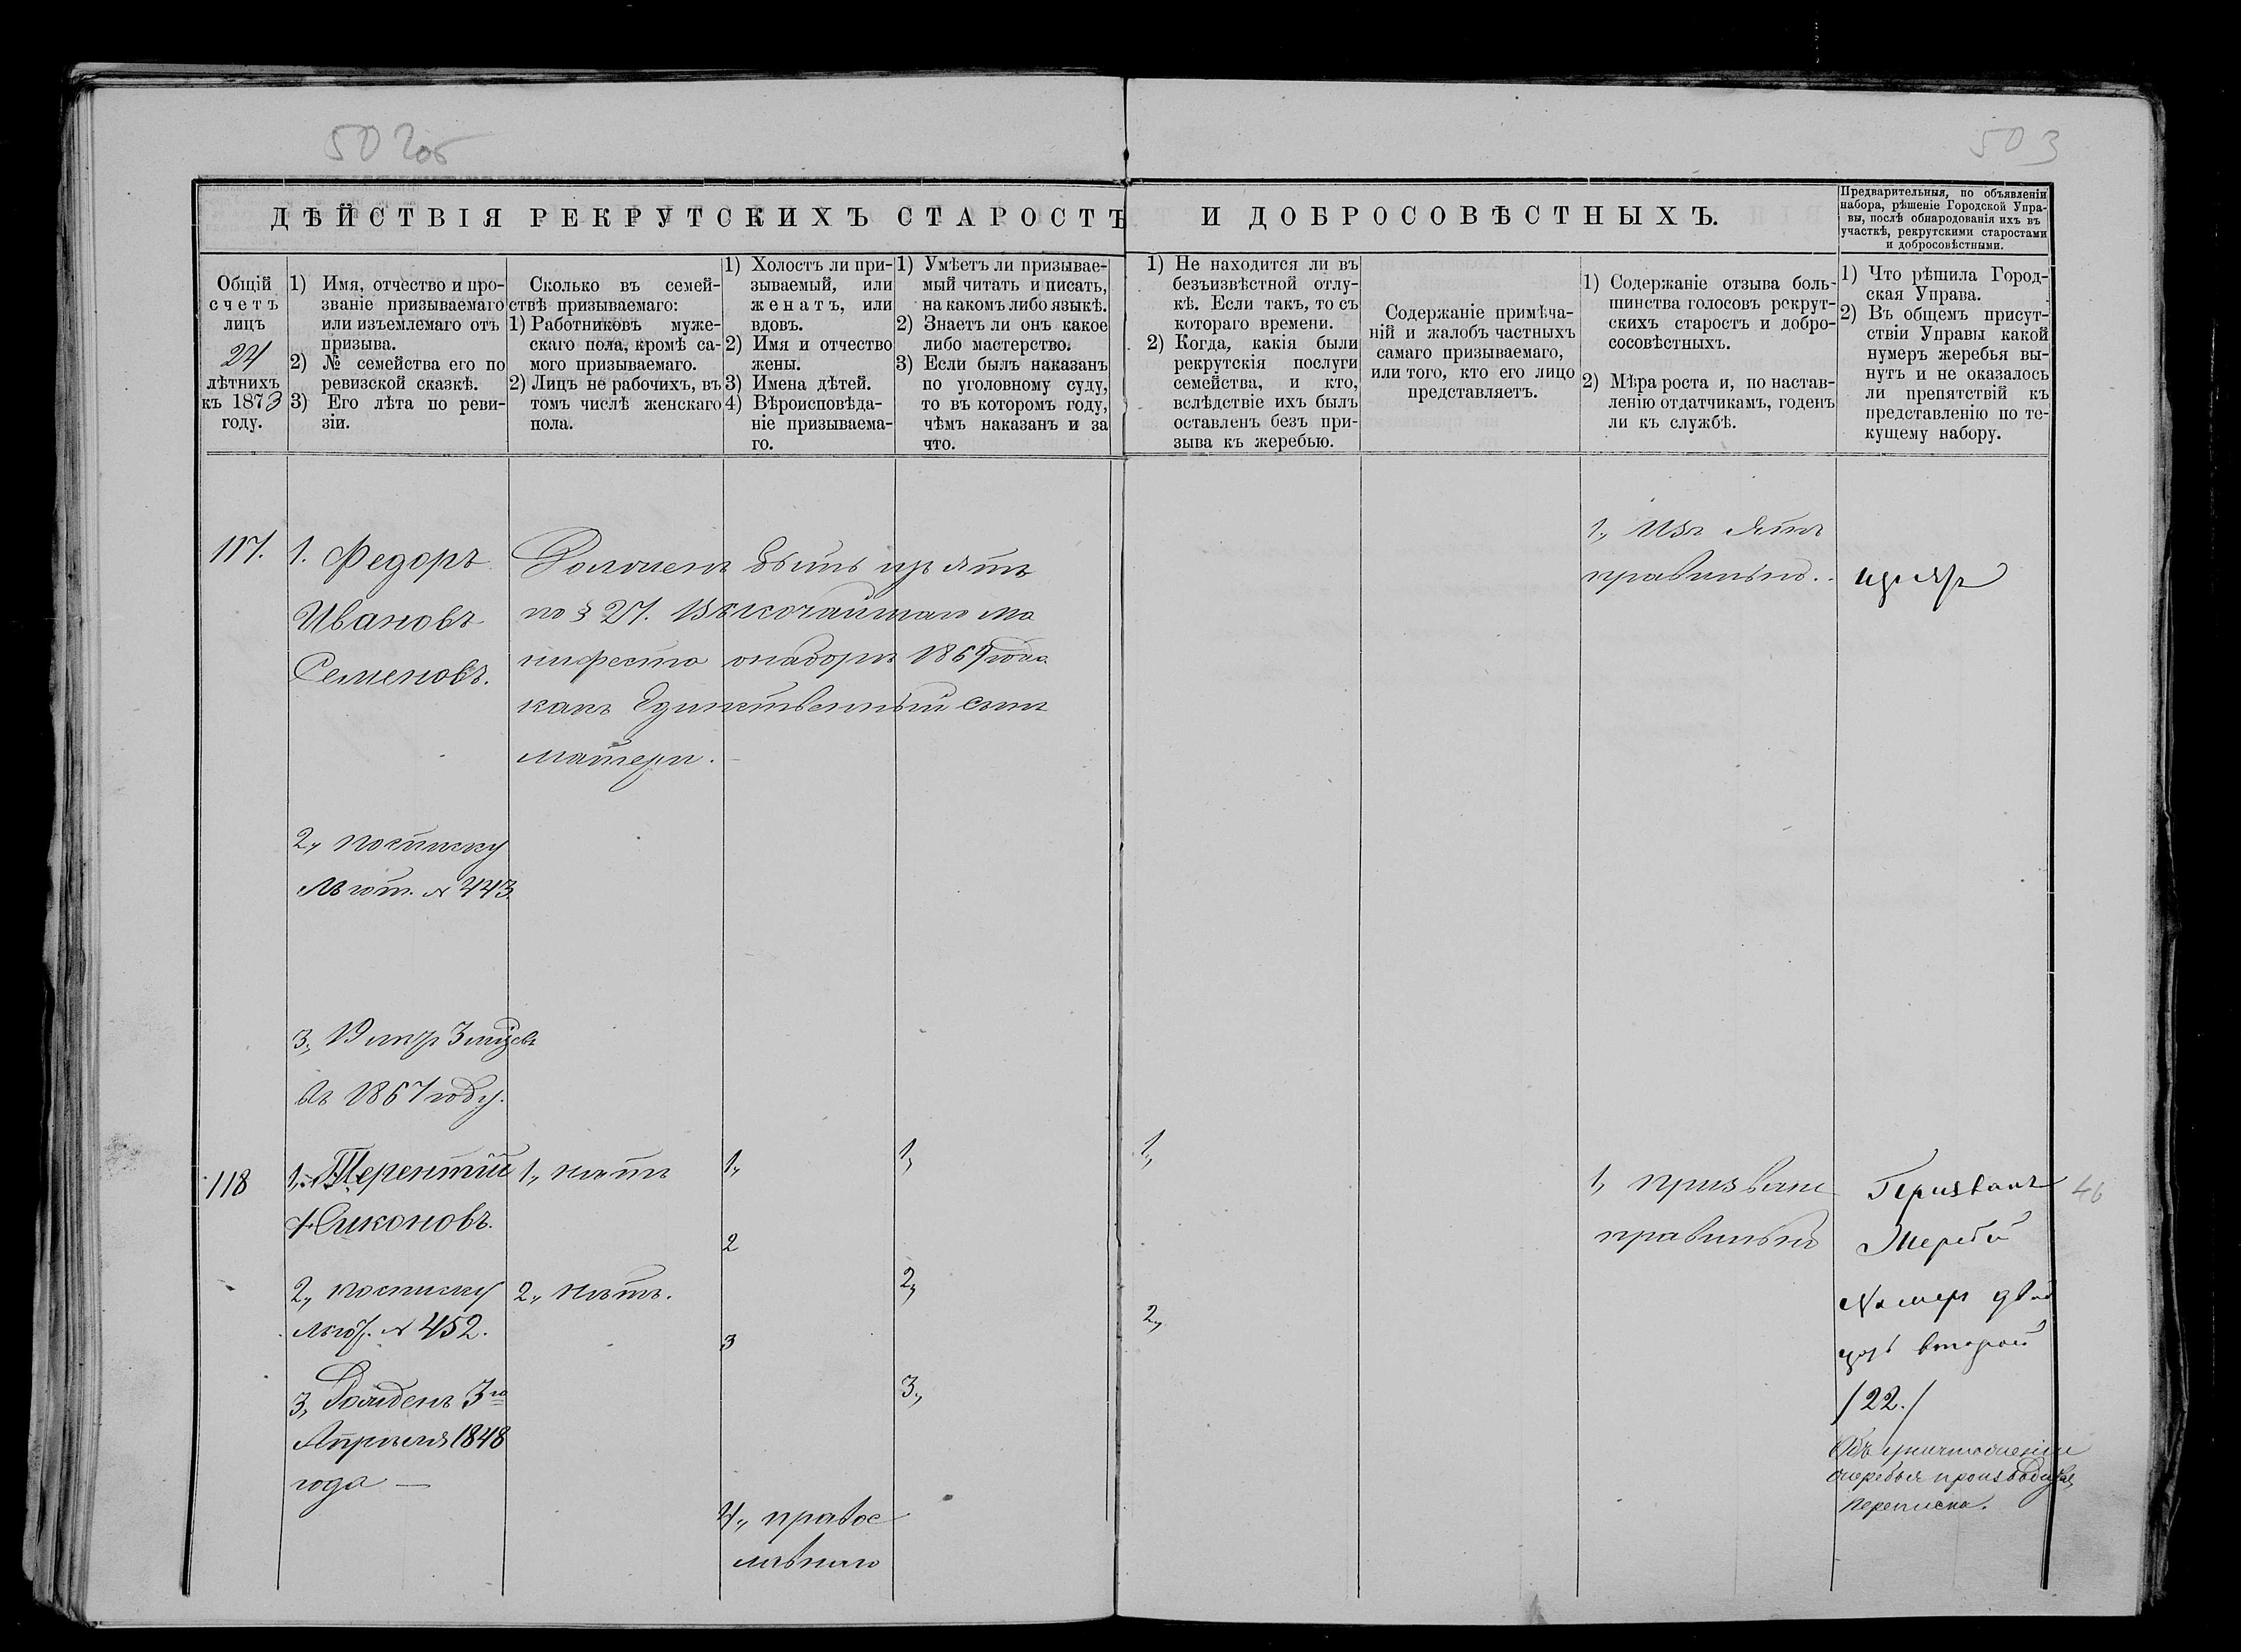 502 об
503
ДѢЙСТВІЯ РЕКРУТСКИХЪ СТАРОСТЪ И ДОБРОСОВѢСТНЫХЪ.
Предварительныя, по объявленіи
набора, рѣшеніе Городской Упра-
вы, послѣ обнародованія ихъ въ
участкѣ, рекрутскими старостами
и добросовѣстными.
Общій
счетъ
лицъ
24
лѣтнихъ
къ 1873
году.
1) Имя, отчество и про-
званіе призываемаго
или изъемлемаго отъ
призыва.
2) № семейства его по
ревизской сказкѣ.
3) Его лѣта по реви-
зіи.
Сколько въ семей-
ствѣ призываемаго:
1) Работниковъ муже-
скаго пола, кромѣ са-
мого призываемаго.
2) Лицъ не рабочихъ, въ
томъ числѣ женскаго
пола.
1) Холостъ ли при-
зываемый, или
женатъ, или
вдовъ.
2) Имя и отчество
жены.
3) Имена дѣтей.
4) Вѣроисповѣда-
ніе призываема-
го.
1) Умѣетъ ли призывае-
мый читать и писать,
на какомъ либо языкѣ.
2) Знаетъ ли онъ какое
либо мастерство.
3) Если былъ наказанъ
по уголовному суду,
то въ которомъ году,
чѣмъ наказанъ и за
что.
1) Не находится ли въ
безъизвѣстной отлу-
кѣ. Если такъ, то съ
котораго времени.
2) Когда, какія были
рекрутскія послуги
семейства, и кто,
вслѣдствіе ихъ былъ
оставленъ безъ при-
зыва къ жеребью.
Содержаніе примѣча-
ній и жалобъ частныхъ
самаго призываемаго,
или того, кто его лицо
представляетъ.
1) Содержаніе отзыва боль-
шинства голосовъ рекрут-
скихъ старостъ и добро-
сосовѣстныхъ.
2) Мѣра роста и, по настав-
ленію отдатчикамъ, годенъ
ли къ службѣ.
1) Что рѣшила Город-
ская Управа.
2) Въ общемъ присут-
ствіи Управы какой
нумеръ жеребья вы-
нутъ и не оказалось
ли препятствій къ
представленію по те-
кущему набору.
117.
1. Федоръ
Ивановъ
Семеновъ.
2, посписку
Льгот. № 443.
3,
въ 1867 году.
Долженъ быть изъятъ
по § 27. Высочайшаго Ма
нифеста о наборѣ 1869 года
какъ Единственный сынъ
матери.
1, Изъятъ
правильно.
изъят
118
1, Терентій
Никоновъ.
2, посписку
льгот. № 452.
3, Рожденъ 3го
Апрѣля 1848
года —
1, нѣтъ
2, нѣтъ.
1,
2
3
4, правос
лавнаго
1,
2,
3,
1,
2,
1, призванъ
правильно
Призванъ
Жребій
Номеръ двад
цать второй
/22./
Объ уничтоженіи
жеребья производится
переписка.
46